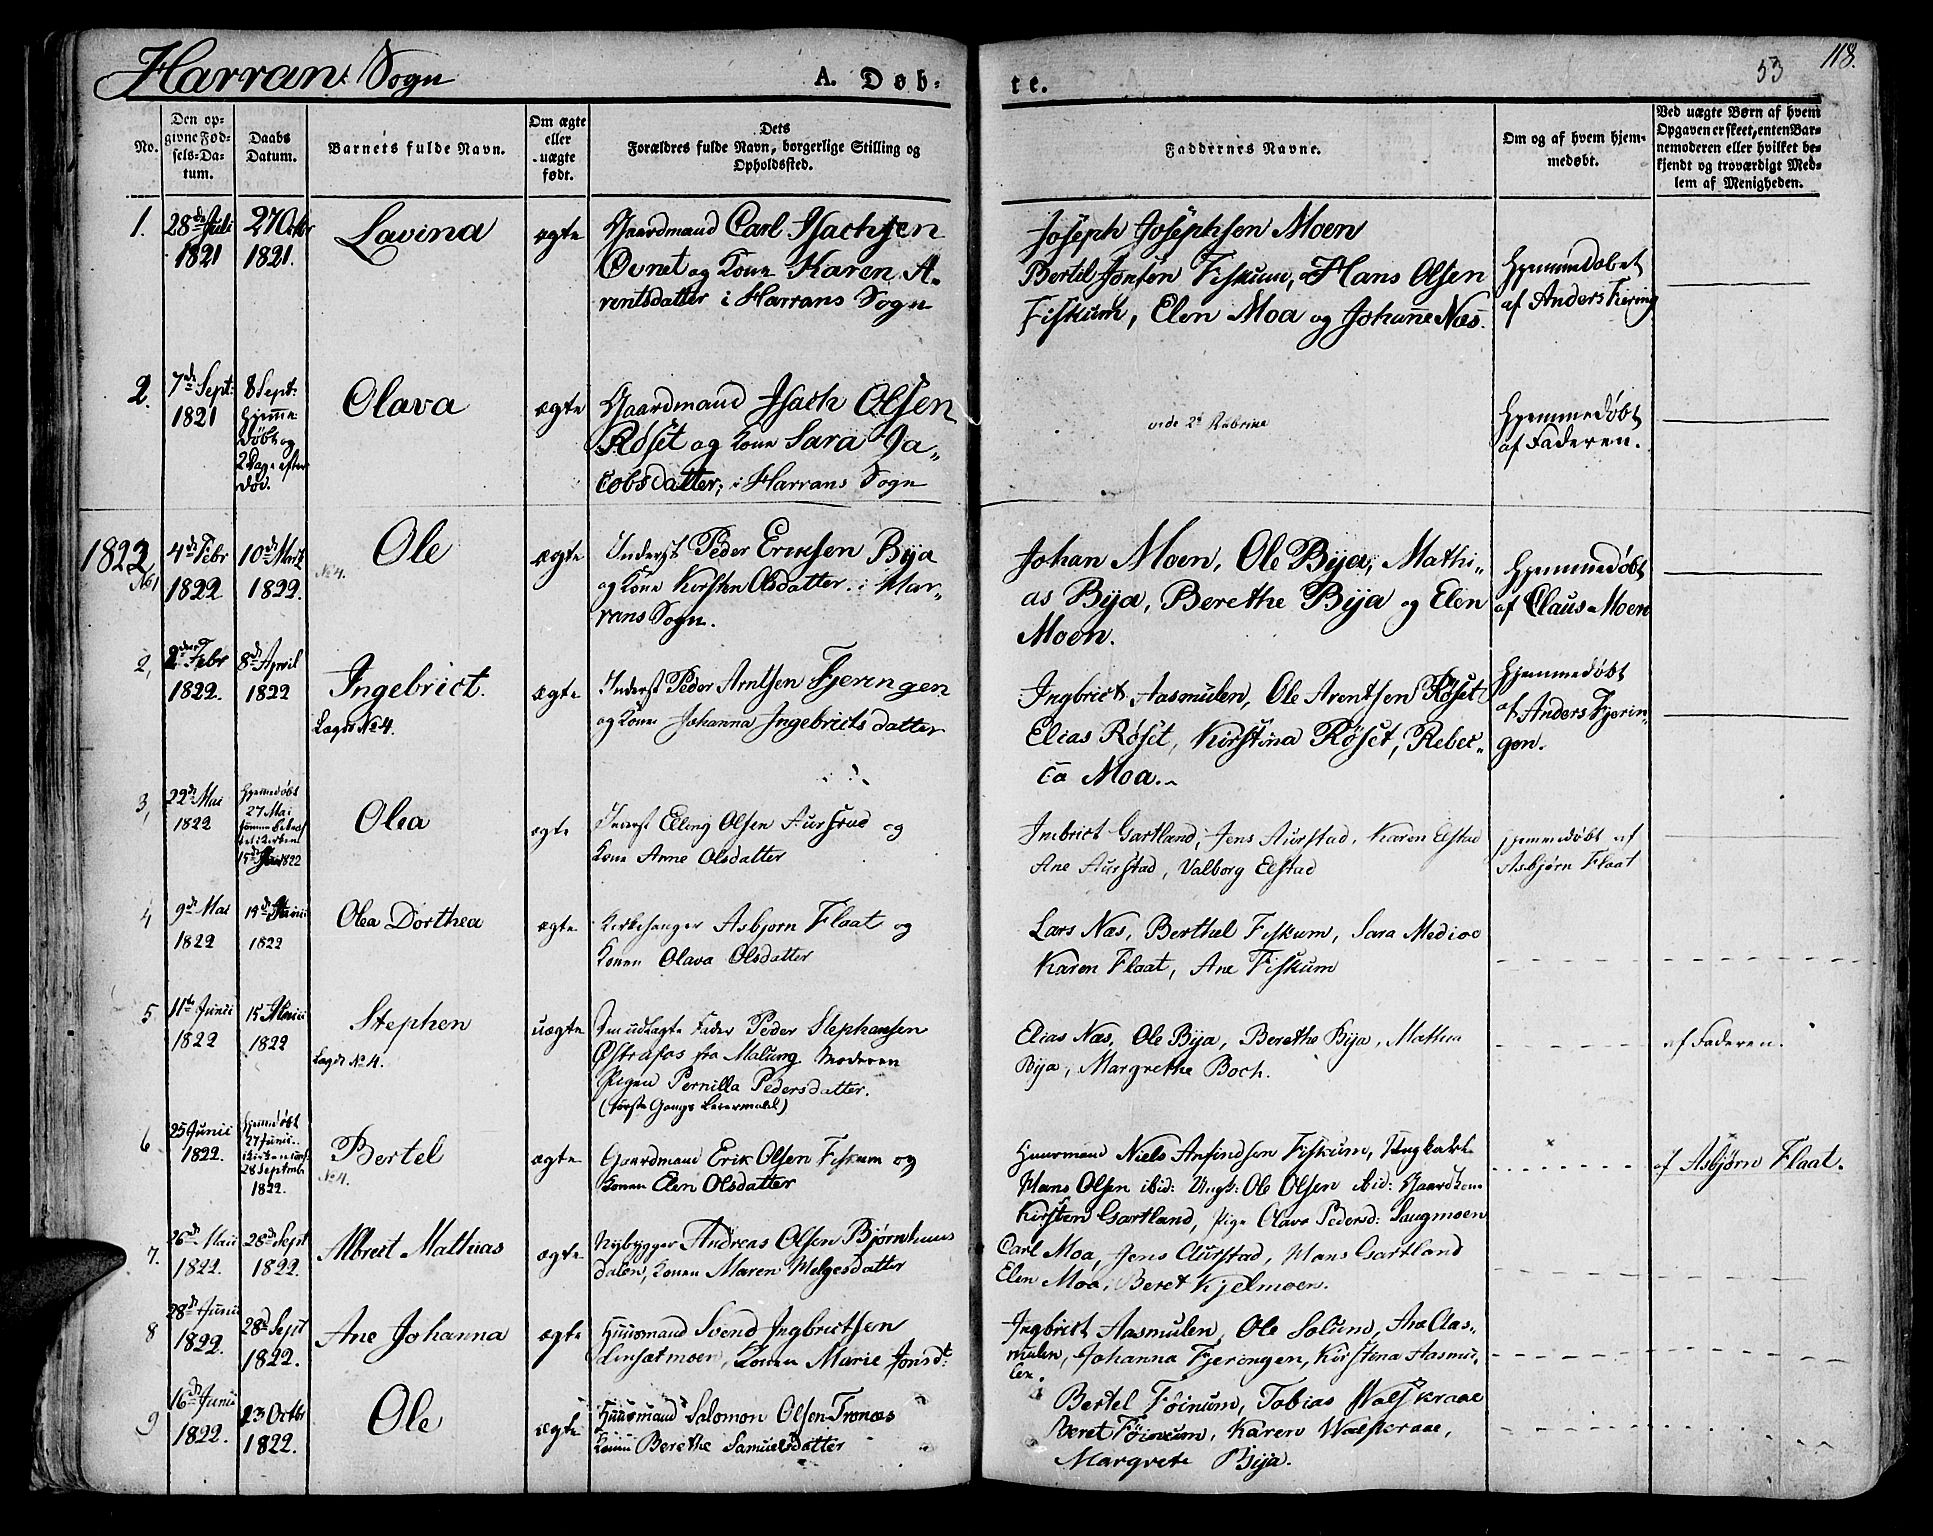 Harran: Sogn
A. Døb-
te.
53
118.
No.
Den op-
givne Fød-
sels-Da-
tum.
Daabs
Datum.
Barnets fulde Navn.
Om ægte
eller
uægte
født.
Dets
Forældres fulde Navn, borgerlige Stilling og
Opholdssted.
Faddernes Navne.
Om og af hvem hjem-
medøbt.
Ved uægte Børn af hvem
Opgaven er skeet, enten Bar-
nemoderen eller hvilket be-
kjendt og troværdigt Med-
lem af Menigheden.
1.
28de Juli
1821
27 Octbr
1821.
Lavina
ægte
Gaardmand Carl Isachsen
Ovnet og Kone Karen A-
rentsdatter i Harrans Sogn
Joseph Josephsen Moen
Bertel Jonsen Fiskum, Hans Olsen
Fiskum, Elen Moa og Johanne Næs.
Hjemmedøbet
af Anders Fiering
2.
7de Sept:
1821
8 Sept:
Hjemme
døbt og
2 Dage efter
død.
Olava
ægte
Gaardmand Isach Olsen
Røset og Kone Sara Ja-
cobsdatter, i Harrans Sogn
vide 2d Rubrike
Hjemmedøbt
af Faderen.
1822
No 1
4de Febr
1822
10de Marts
1822.
Ole
No 4.
ægte
Inderst Peder Eriksen Bya
og Kone Kirsten Olsdatter i Har-
rans Sogn.
Johan Moen, Ole Bija, Mathi-
as Bija, Berethe Bija og Elen
Moen.
Hjemmedøbt
af Claus Moen
2,
Febr
1822.
8de April
1822
Ingebrict.
Lagd No 4.
ægte
Inderst Peder Arntsen Fjeringen
og Kone Johanna Ingebrictsdatter
Ingbrict Aasmulen, Ole Arentsen Røset
Elias Røset, Kirstina Røset, Rebec-
ca Moa.
Hjemmedøbt
af Anders Fjerin-
gen.
3,
22de Mai
1822
Hjemmedøbt
27 Mai
15de 1822
Olea
ægte
Inderst Elling Olsen Aurstad og
Kone Anne Olsdatter
Imbrict Gartland, Jens Aurstad, Karen Elstad
Ane Aurstad, Valborg Elstad
hjemmedøbt af
Asbjørn Flaat
4
9de Mai
1822
19de Junii
1822
Olea Dorthea
ægte
Kirkesanger Asbjørn Flaat og
Konen Olava Olsdatter
Lars Næs, Berthel Fiskum, Sara Mediaa
Karen Flaat, Ane Fiskum
5
11te Junii
1822
15
1822
Stephen
Lagd No 4.
uægte
Den udlagte Fader Peder Stephansen
Østraasos fra Malung Moderen
Pigen Pernilla Pedersdatter.
(første Gangs Leiermaal)
Elias Næs, Ole Bija, Berethe Bija, Mathia
Bija, Margrethe Boch.
af Faderen.
6
25 Junii
1822.
Hjemmedøbt
27 Junii
28 Septmbr
1822.
Bertel
No 4.
ægte
Gaardmand Erik Olsen Fiskum og
Konen Elen Olsdatter
Huusmand Niels Arfindsen Fiskum, Ungkarl
Hans Olsen ibid: Ungk: Ole Olsen ibid: Gaardkone
Kirsten Gartland, Pige Olava Pedersd: Laugmoen
af Asbjørn Flaat.
7.
26de Maii
1822.
28de Sept
1822.
Albreit Mathias
ægte
Nybygger Andreas Olsen Bjørnhuus
dalen, Konen Maren Helgesdatter
Carl Moa, Jens Aurstad, Hans Gartland
Elen Moa, Beret Kjelmoen.
8
28de Junii
1822.
28de Sept
1822.
Ane Johanna
ægte
Huusmand Svend Ingbrictsen
Linsætmoen, Konen Marie Jonsd:
Ingbrict Aasmulen, Ole Solum, Ane Aas-
mulen, Johanna Fjeringen, Kirstina Aasmu-
len.
9
16de Junii
1822.
23 Octbr
1822.
Ole
ægte
Huusmand Salomon Olsen Tronæs
Konen Berethe Samuelsdatter
Bertel Føinum, Tobias Walskraae
Beret Føinum, Karen Walskraae,
Margrete Bija.